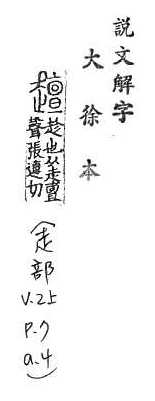 説文解字
大徐本
𧾍趁也从走亶
聲張連切
(走部
v.2上
p.7
a.4)